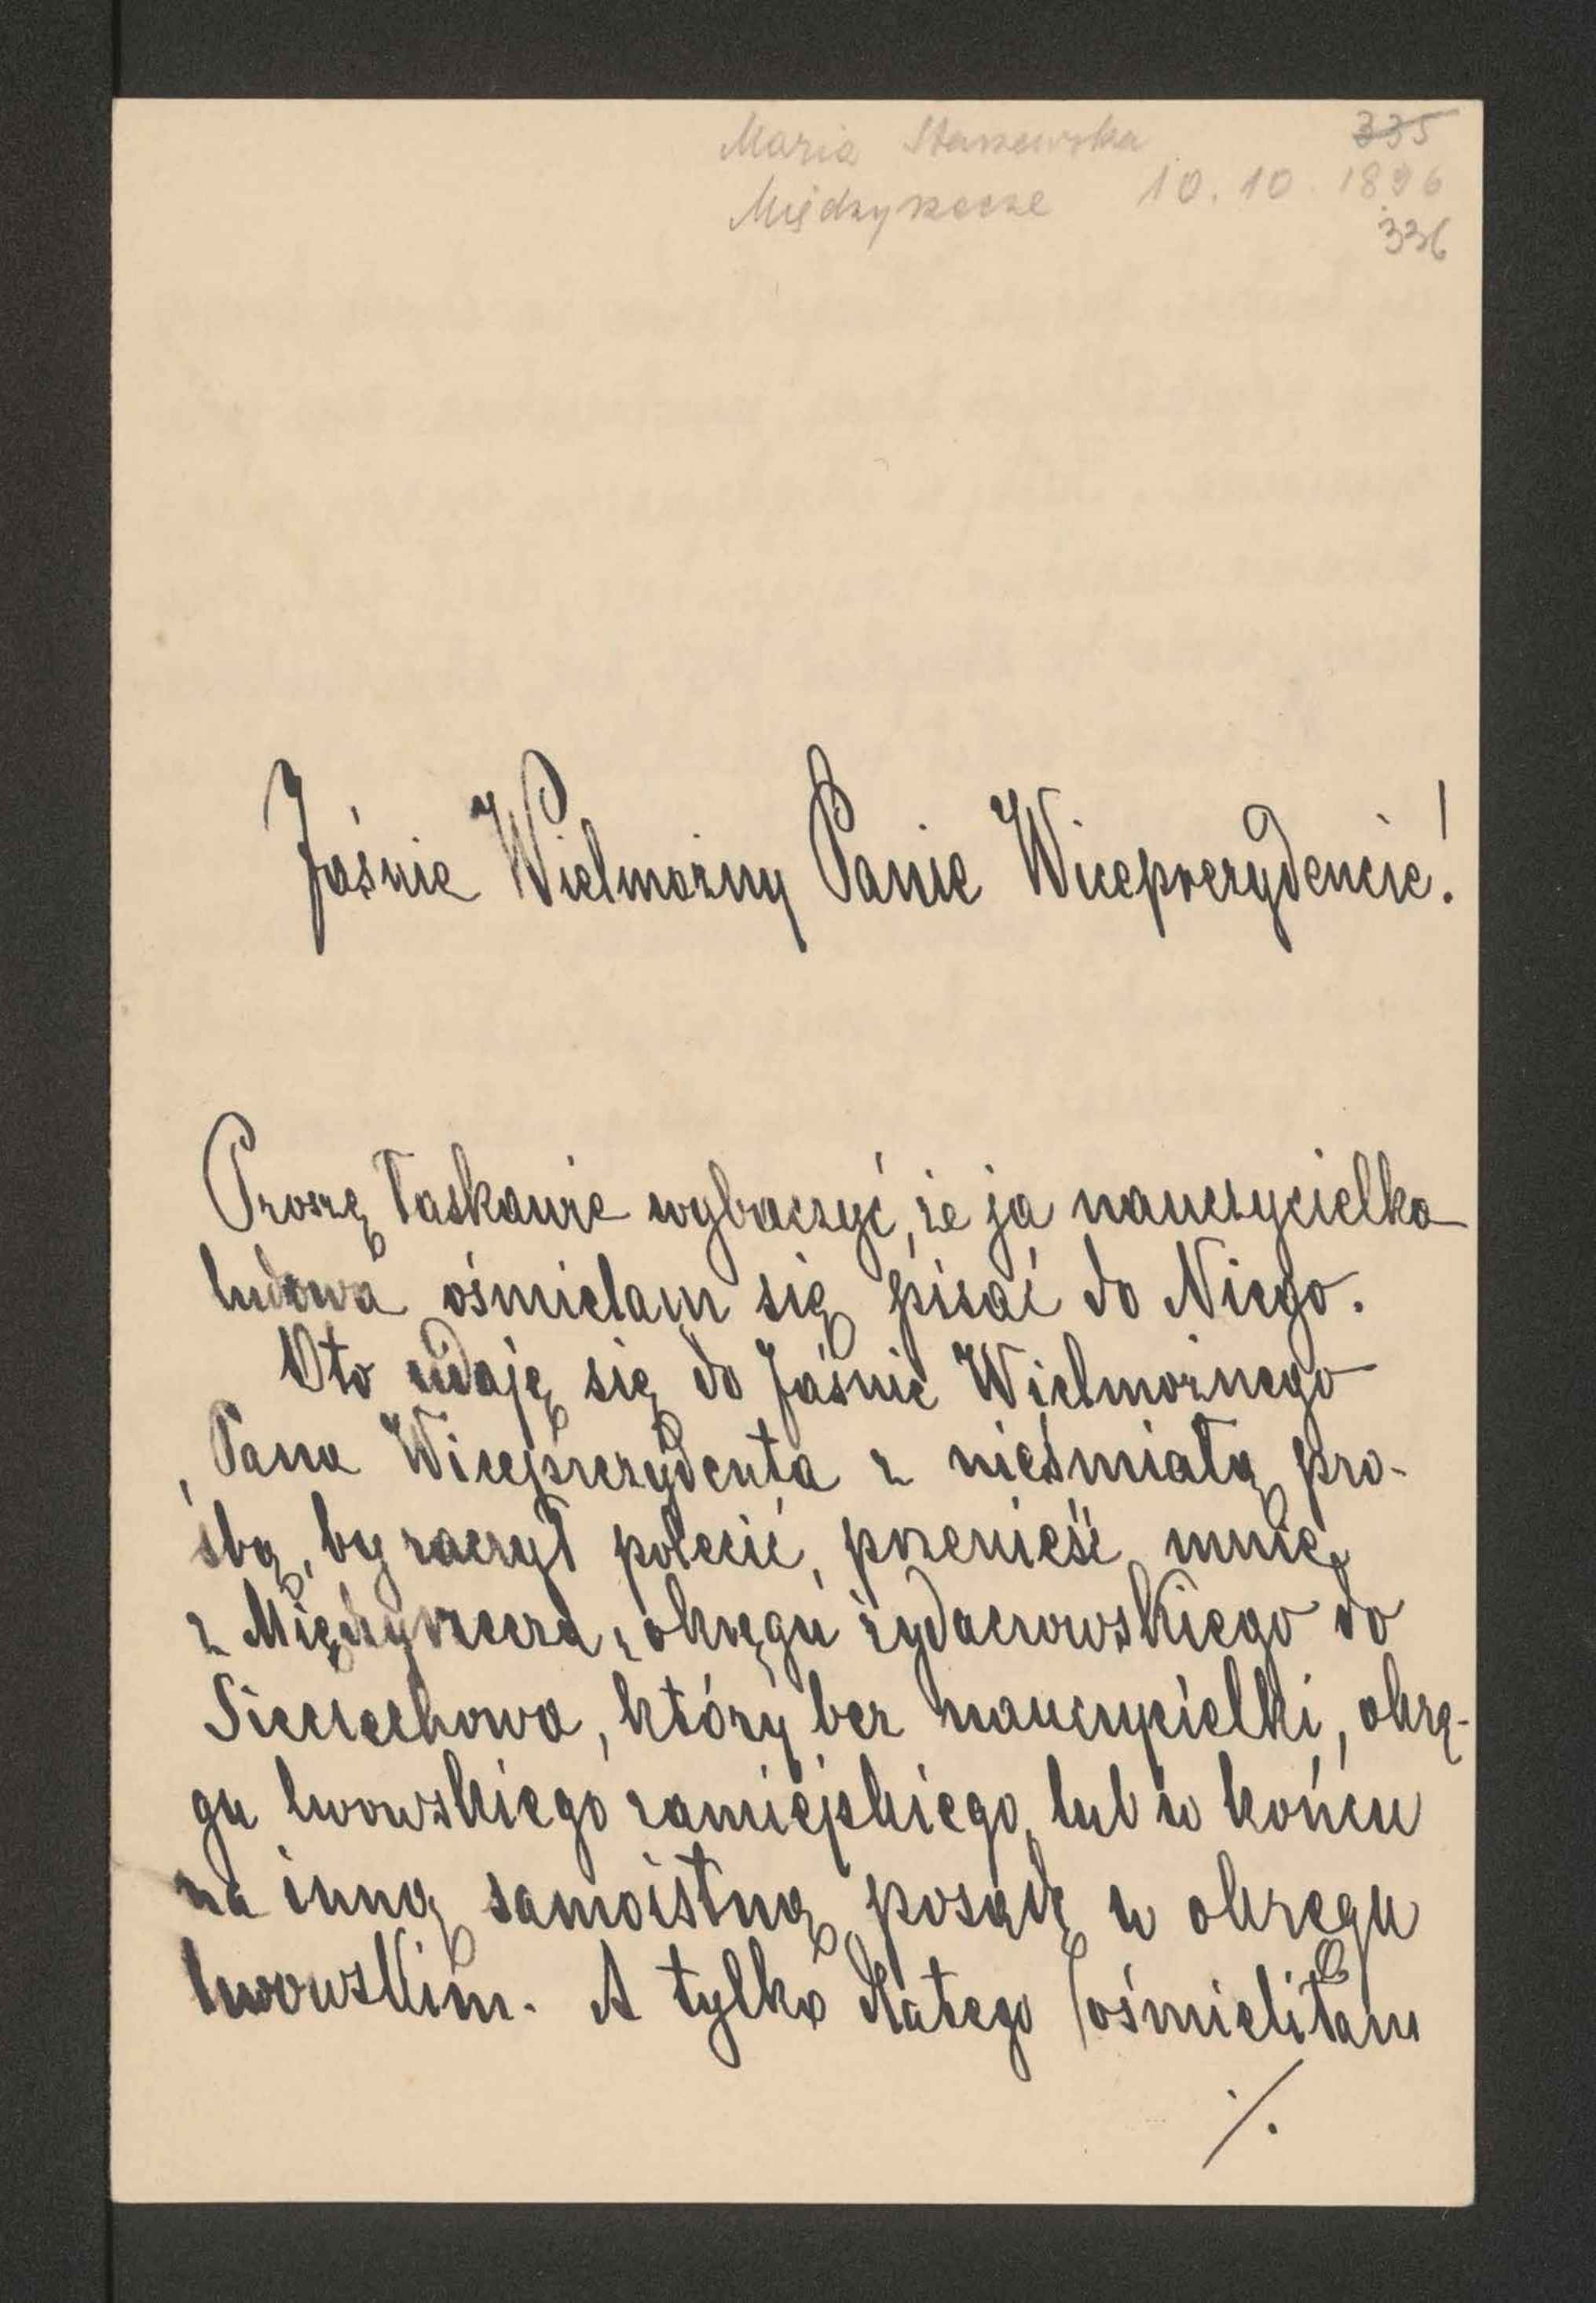 Maria Staszewska 335
Międzyrzecze 10. 10. 1896
336
Jaśnie Wielmożny Panie Wiceprezydencie!
Proszę łaskawie wybaczyć, że ja nauczycielka
ludowa ośmielam się pisać do Niego.
Oto udaję się do Jaśnie Wielmożnego
Pana Wiceprezydenta z nieśmiałą pro-
śbą, by raczył polecić, przenieść mnie
z Międzyrzecza, okręgu żydaczowskiego do
Sieciechowa, który bez nauczycielki, okrę-
gu lwowskiego zamiejskiego, lub w końcu
na inną samoistną posadę w okręgu
lwowskim. A tylko dlatego ośmieliłam
./.